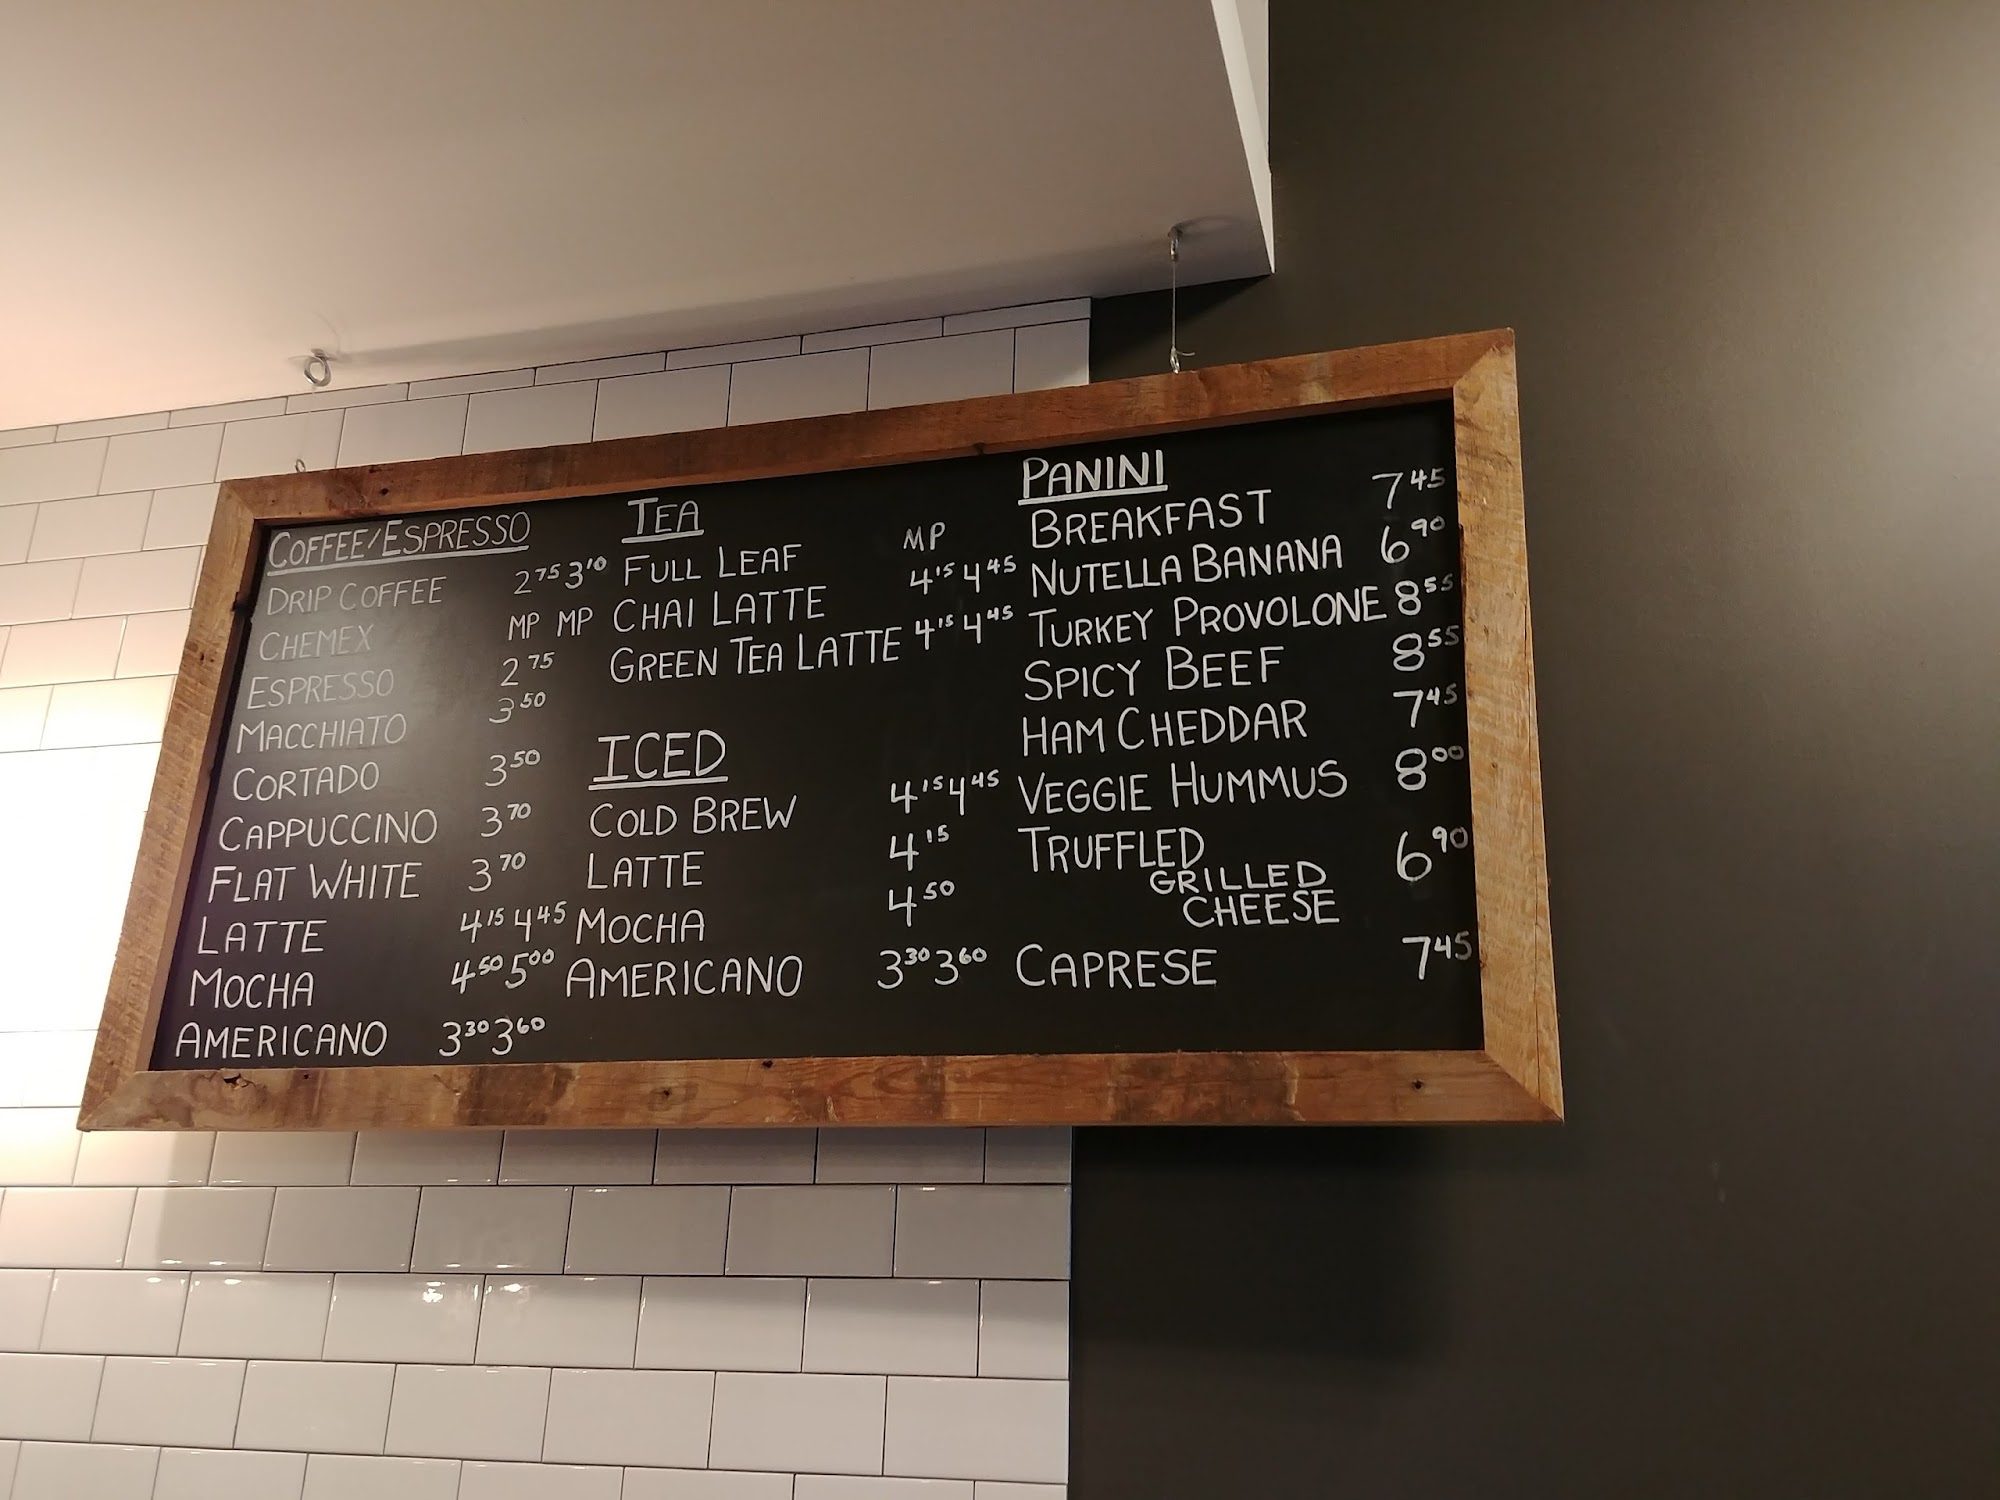 COFFEE/ESPRESSO
DRIP COFFEE 2.75 3.10
CHEMEX MP MP
ESPRESSO 2.75
MACCHIATO 3.50
CORTADO 3.50
CAPPUCCINO 3.70
FLAT WHITE 3.70
LATTE 4.15 4.45
MOCHA 4.50 5.00
AMERICANO 3.30 3.60
TEA
FULL LEAF MP
CHAI LATTE 4.15 4.45
GREEN TEA LATTE 4.15 4.45
ICED
COLD BREW 4.15 4.45
LATTE 4.15
MOCHA 4.50
AMERICANO 3.30 3.60
PANINI
BREAKFAST 7.45
NUTELLA BANANA 6.90
TURKEY PROVOLONE 8.55
SPICY BEEF 8.55
HAM CHEDDAR 7.45
VEGGIE HUMMUS 8.00
TRUFFLED 6.90
GRILLED
CHEESE
CAPRESE 7.45